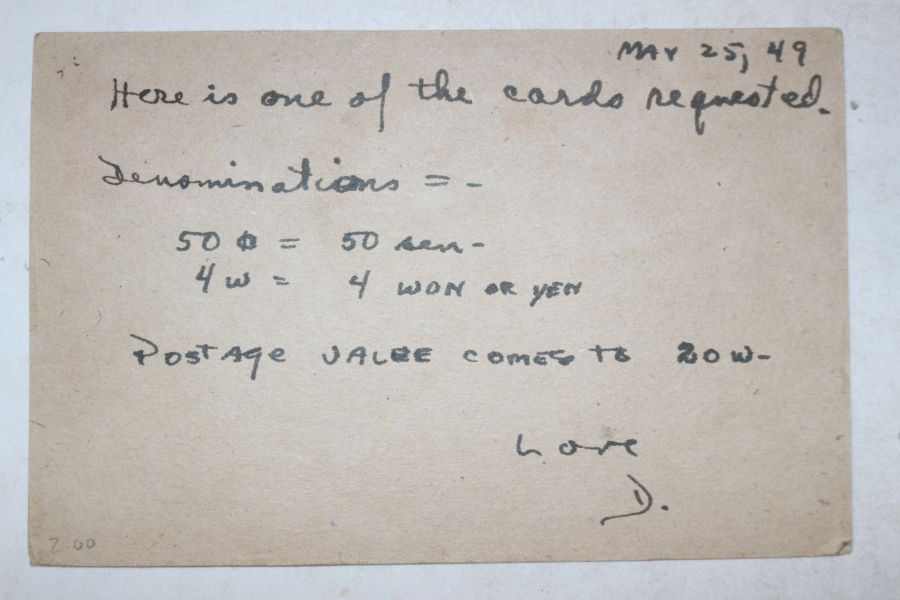 MAY 25, 49
Here is one of the cards requested.
Denominations = -
50 ¢ = 50 sen -
4 W = 4 WON OR YEN
POSTAGE VALUE COMES TO 20 W -
Love
D.
2.00